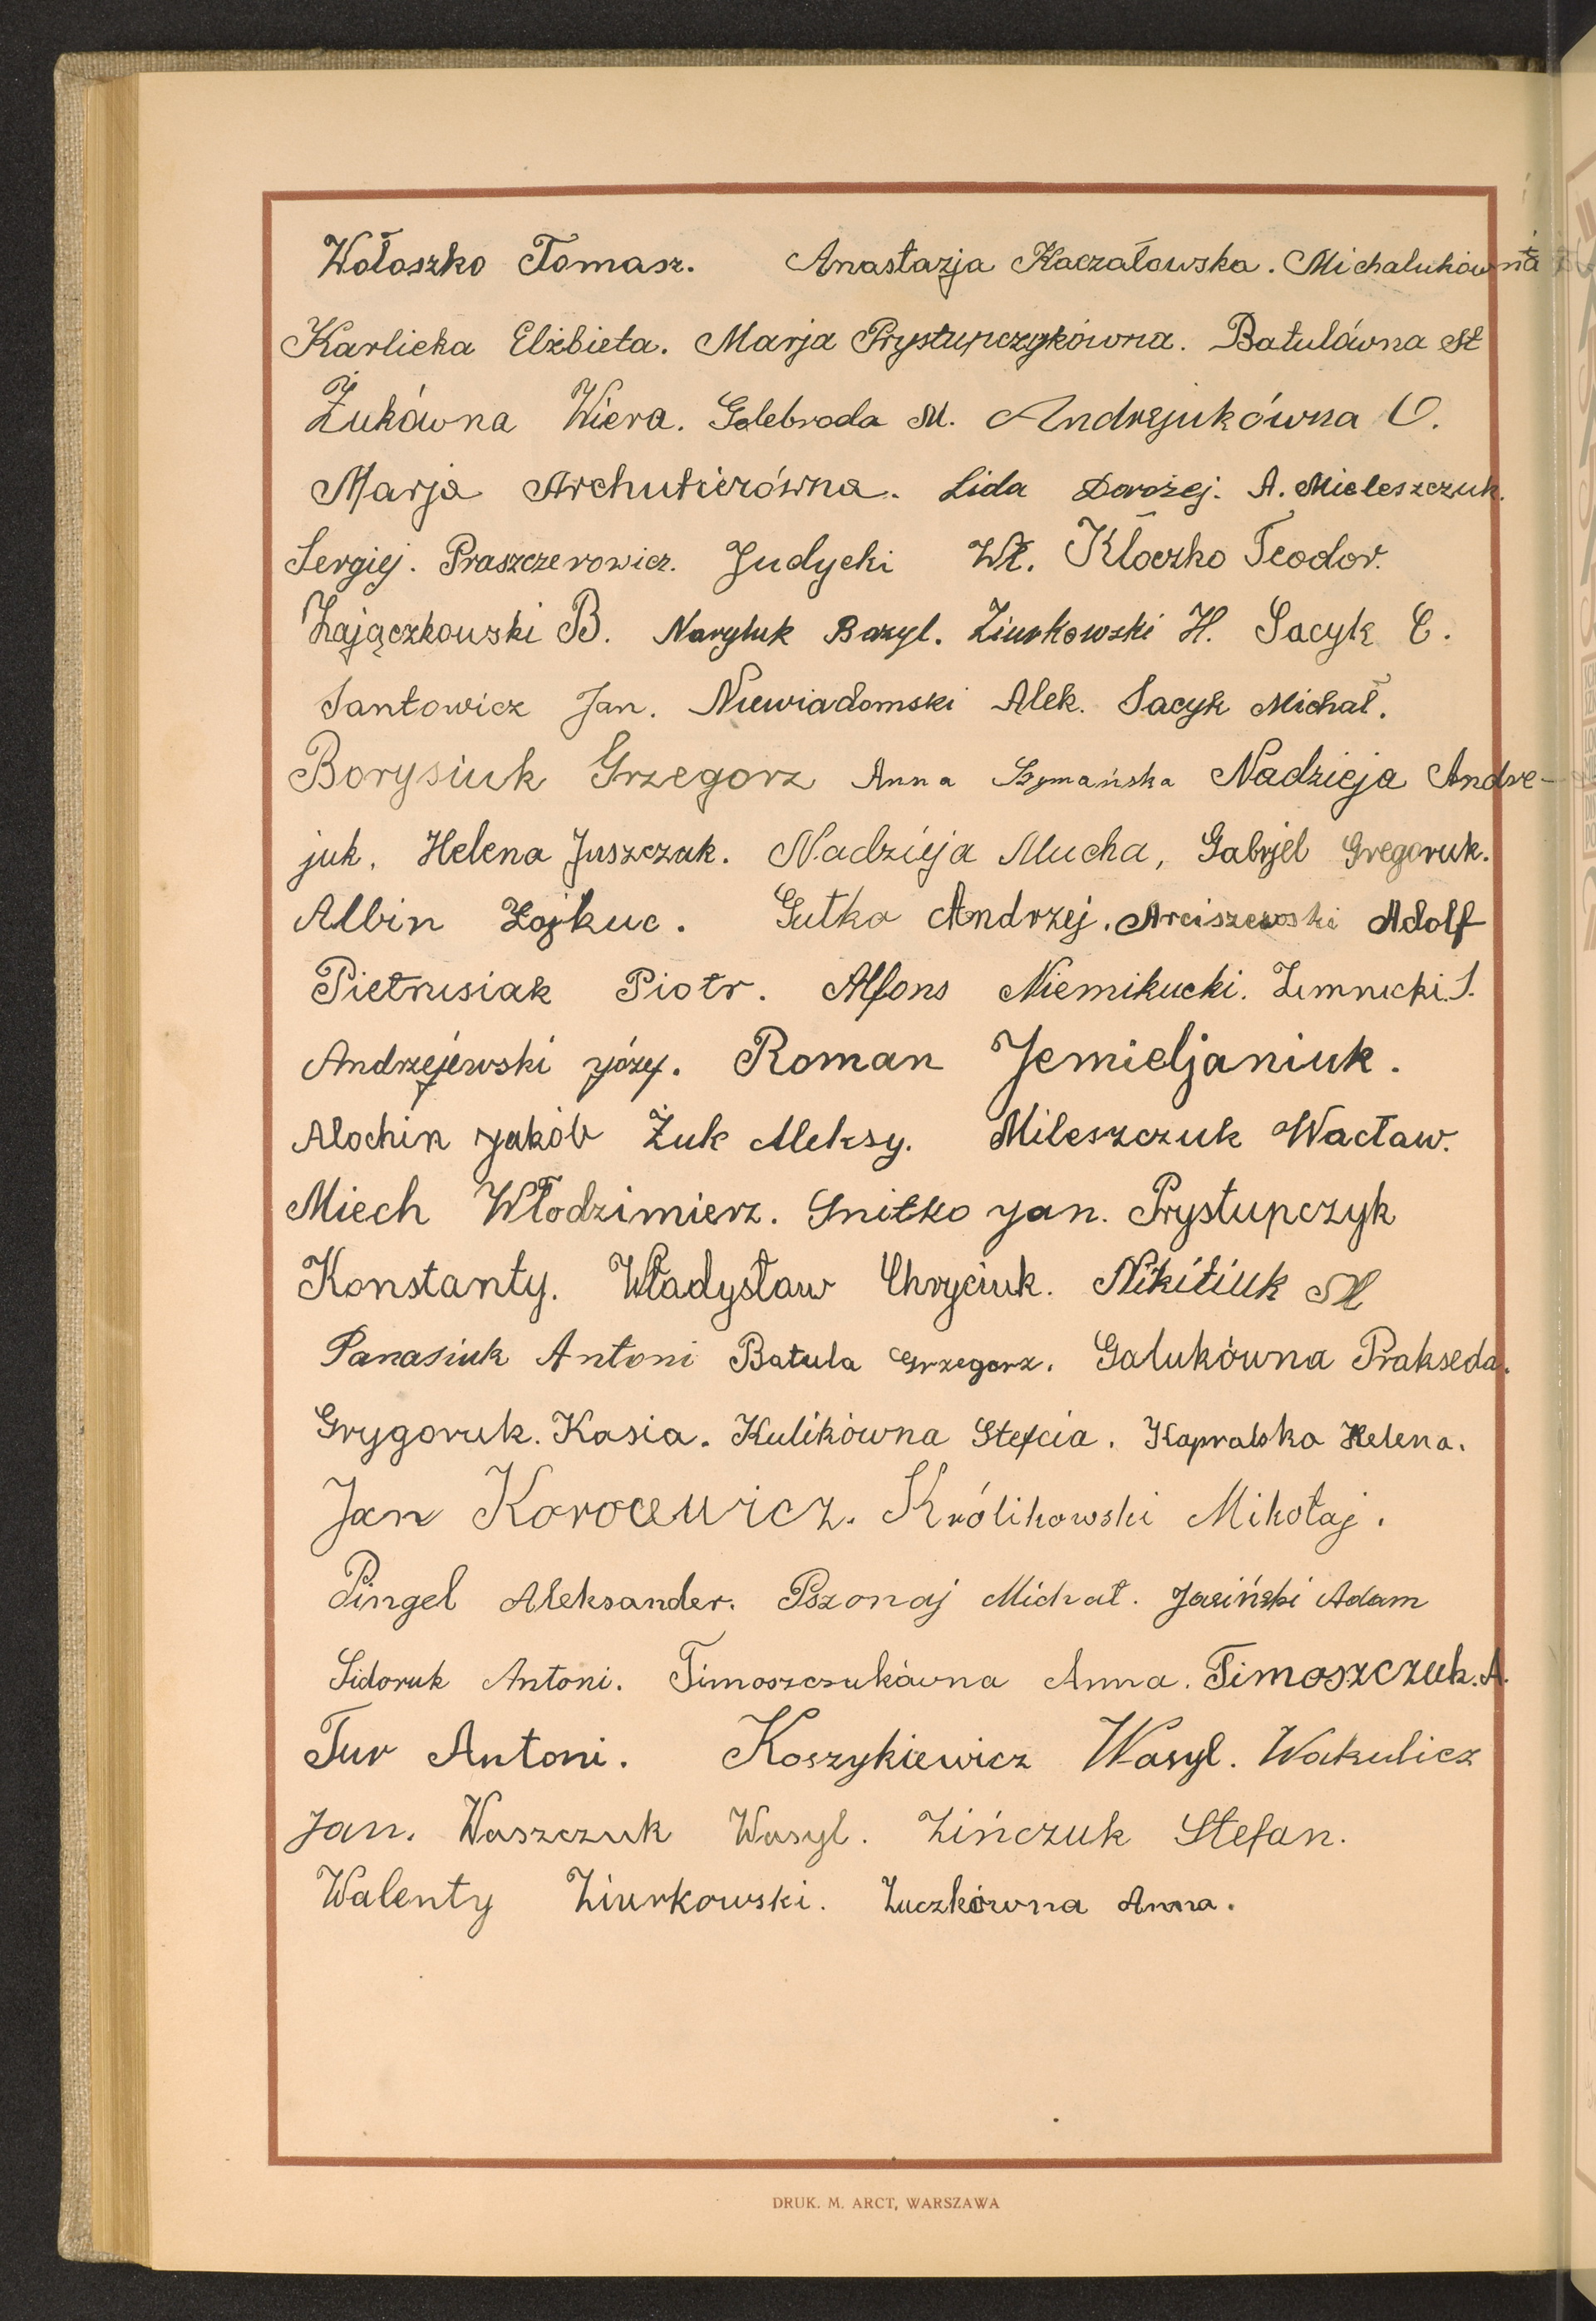 Wołoszko Tomasz. Anastazja Kaczałowska. Michalukówna
Karlicka Elżbieta. Marja Prystupczykówna. Batulówna St
Żukówna Wiera. Golebroda M. Andrejukówna O.
Marja Archutierówna. Lida Dorożej. A. Mieleszczuk.
Sergiej. Praszczerowicz. Judycki Wł. Kłoczko Teodor.
Zajączkowski B. Naryluk Bazyl. Ziurkowski H. Sacyk C.
Santowicz Jan. Niewiadomski Alek. Sacyk Michał.
Borysiuk Grzegorz Anna Szymańska Nadzieja Andre-
juk. Helena Juszczuk. Nadzieja Mucha, Gabrjel Gregoruk.
Albin Zajkuc. Gutko Andrzej. Arciszewski Adolf
Pietrusiak Piotr. Alfons Niemikucki. Zimnicki. S.
Andrzejewski Józef. Roman Jemieljaniuk.
Alochin Jakób Żuk Aleksy. Mileszczuk Wacław.
Miech Włodzimierz. Snitko Jan. Prystupczyk
Konstanty. Władysław Chryciuk. Nikitiuk M
Panasiuk Antoni Batula Grzegorz. Galukówna Prakseda.
Grygoruk. Kasia. Kulikówna Stefcia. Kapralska Helena.
Jan Korocewicz. Królikowski Mikołaj.
Pingel Aleksander. Pszonaj Michał. Jasiński Adam
Sidoruk Antoni. Timoszczukówna Anna. Timoszczuk. A.
Tur Antoni. Koszykiewicz Wasyl. Wakulicz
Jan. Waszczuk Wasyl. Zińczuk Stefan.
Walenty Ziurkowski. Zuczkówna Anna.
DRUK. M. ARCT, WARSZAWA